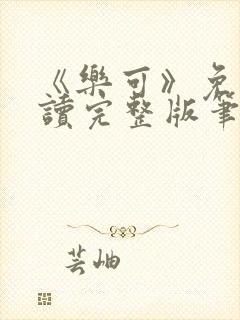 《樂可》免
讀完整版筆
芸岫